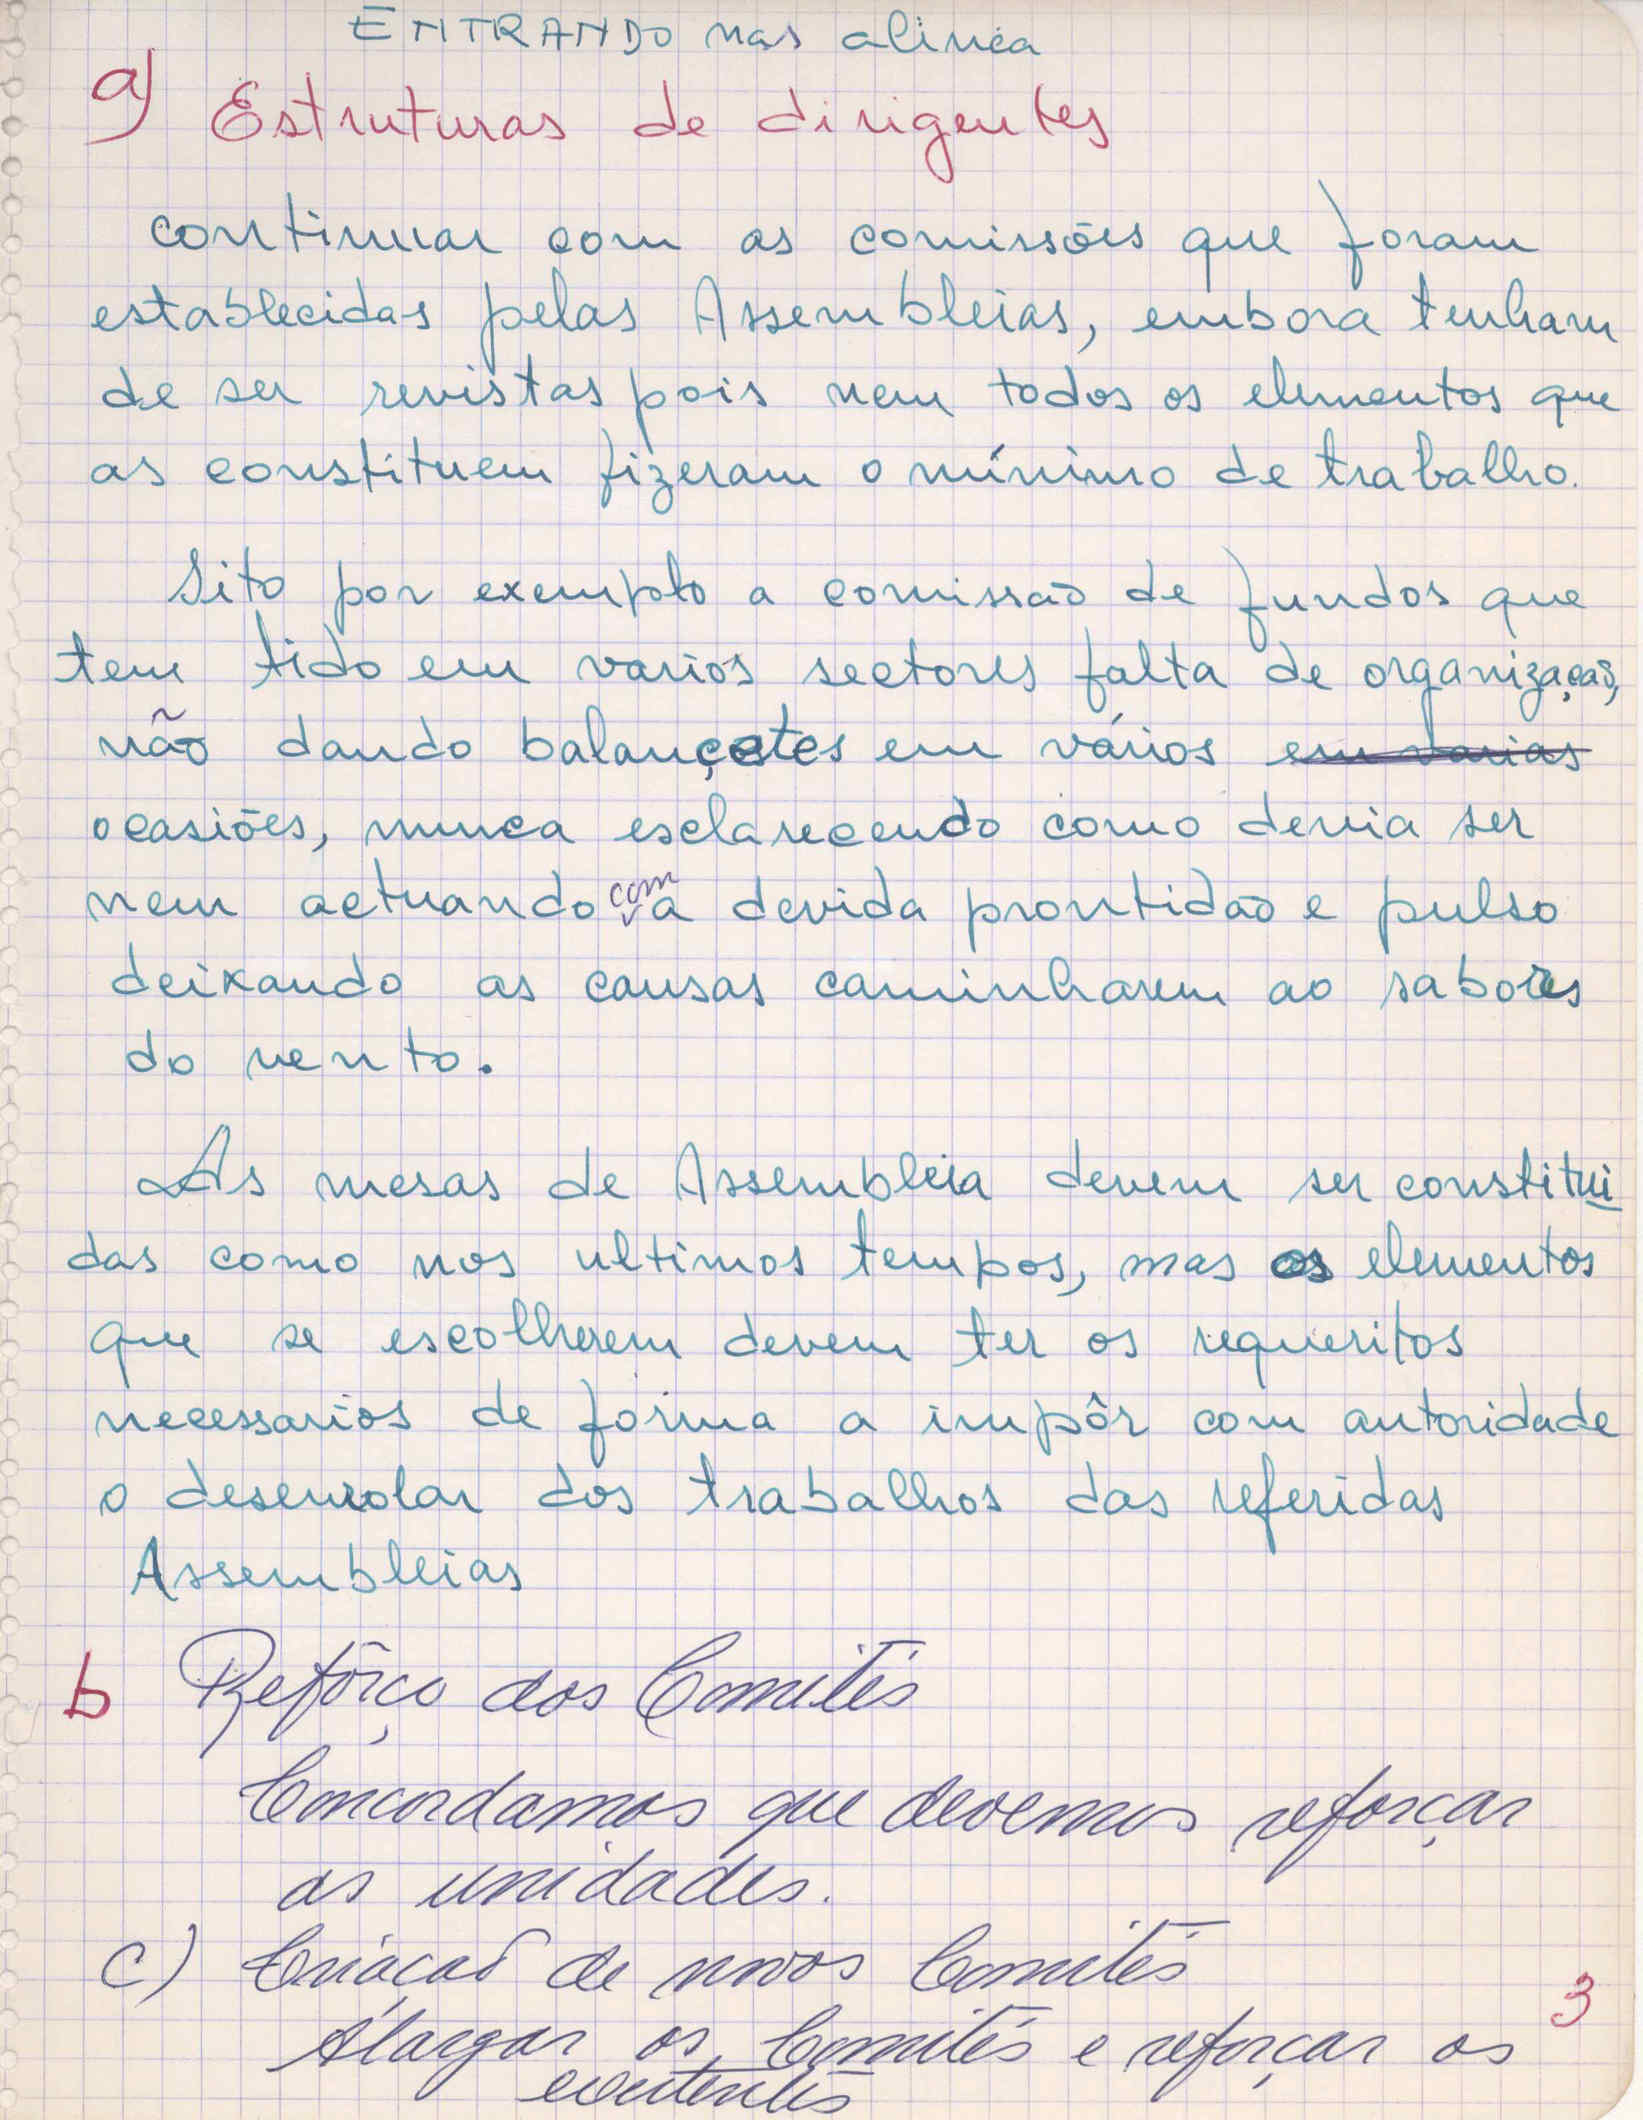 ENTRANDO nas alinea
a) Estruturas de dirigentes
continuar com as comissões que foram
establecidas pelas Assembleias, embora tenham
de ser revistas pois nem todos os elementos que
as constituem fizeram o mínimo de trabalho.
Sito por exemplo a comissão de fundos que
tem tido em varios sectores falta de organização,
não dando balançetes em vários em varias
ocasiões, nunca esclarecendo como devia ser
nem actuando com a devida prontidão e pulso
deixando as causas caminharem ao sabores
do vento.
As mesas de Assembleia devem ser constitui
das como nos ultimos tempos, mas os elementos
que se escolherem devem ter os requeritos
necessarios de forma a impôr com autoridade
o desenrolar dos trabalhos das referidas
Assembleias
b Refôrço dos Comités
Concordamos que devemos reforçar
as unidades.
c) Criação de novos Comités
Álargar os Comités e reforçar os
3